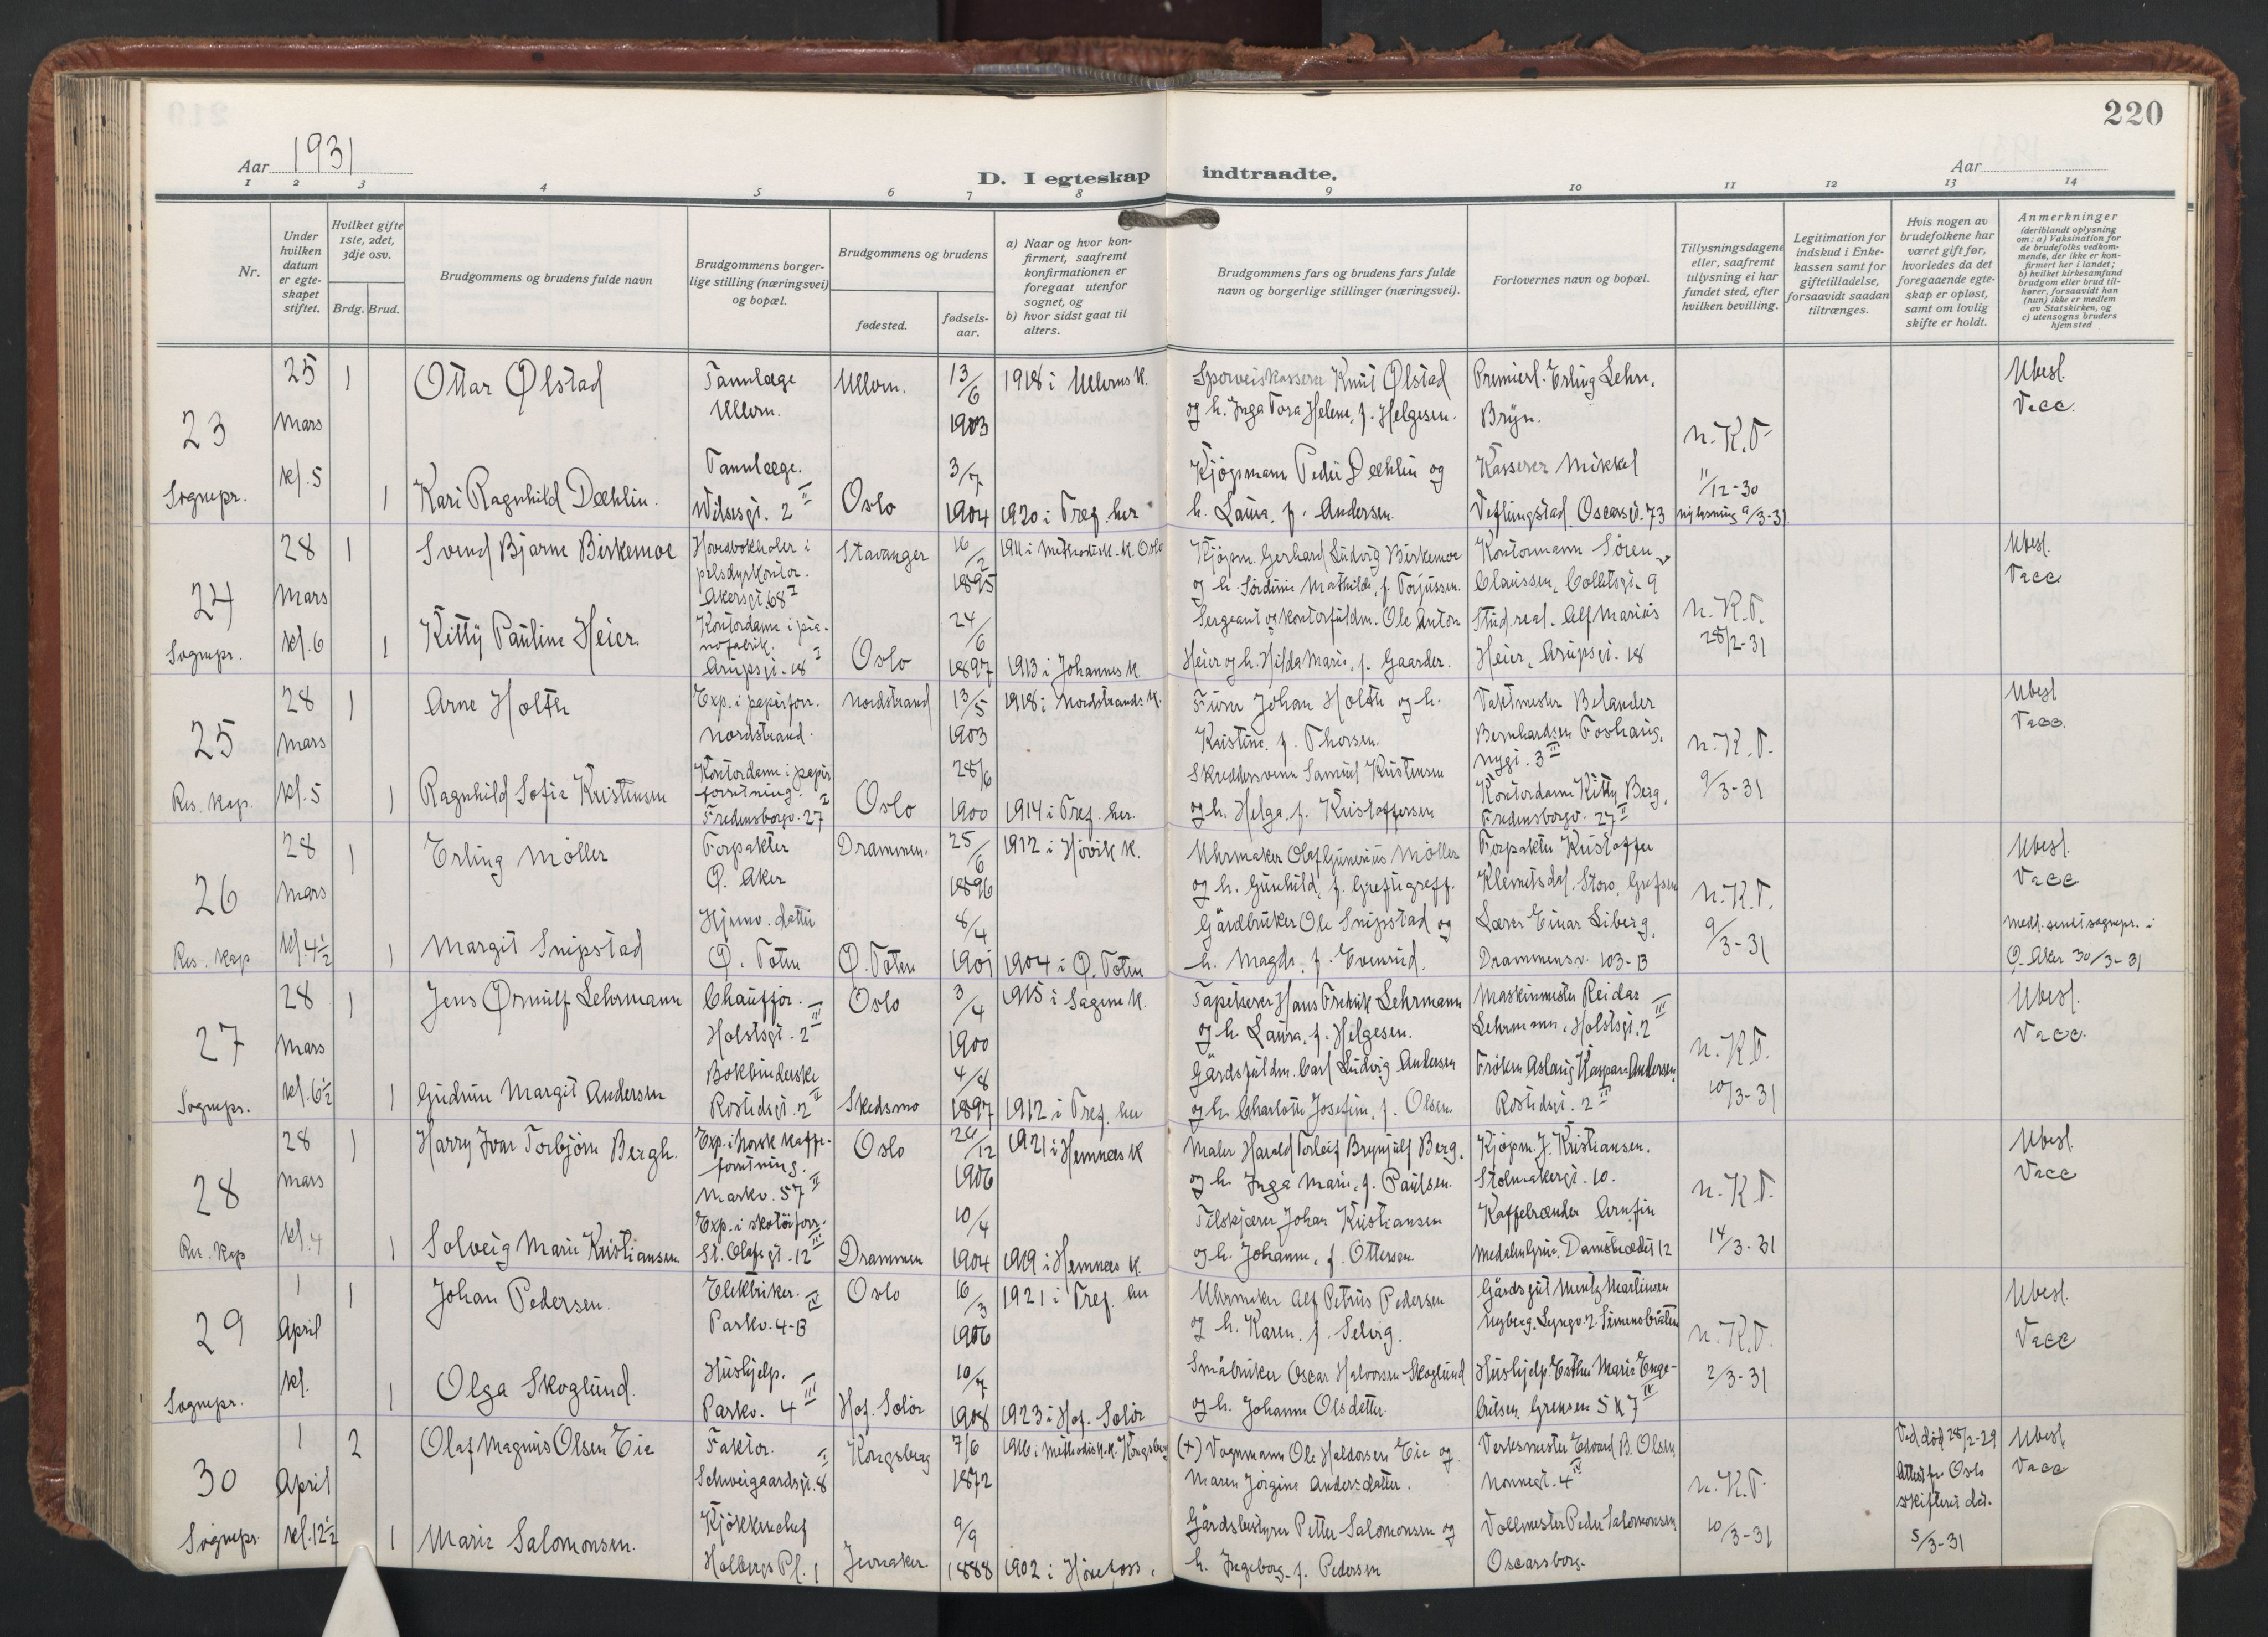 220
Aar 1931
D. I egteskap indtraadte.
Aar
1 2 3 4 5 6 7 8 9 10 11 12 13 14
Nr.
Under hvilken datum er egteskapet stiftet.
Hvilket gifte 1ste, 2det, 3dje osv.
Brdg. Brud.
Brudgommens og brudens fulde navn
Brudgommens borgerlige stilling (næringsvei) og bopæl.
Brudgommens og brudens
fødested.
fødselsaar.
a) Naar og hvor konfirmert, saafremt konfirmationen er foregaat utenfor sognet, og
b) hvor sidst gaat til alters.
Brudgommens fars og brudens fars fulde navn og borgerlige stillinger (næringsvei).
Forlovernes navn og bopæl.
Tillysningsdagene eller, saafremt tillysning ei har fundet sted, efter hvilken bevilling.
Legitimation for indskud i Enkekassen samt for giftetilladelse, forsaavidt saadan tiltrænges.
Hvis nogen av brudefolkene har været gift før, hvorledes da det foregaaende egteskap er opløst, samt om lovlig skifte er holdt.
Anmerkninger
(deriblandt oplysning om: a) Vaksination for de brudefolks vedkommende, der ikke er konfirmert her i landet; b) hvilket kirkesamfund brudgom eller brud tilhører, forsaavidt han (hun) ikke er medlem av Statskirken, og c) utensogns bruders hjemsted
23 Sognepr.
25 Mars kl. 5
1 Ottar Ølstad
Tannlæge Ullern.
Ullern.
13/6 1903
1918 i Ullerns K.
Sporveiskasserer Knut Ølstad
og h. Inga Tora Helene, f. Helgesen.
Premierl. Erling Lehn,
Bryn.
1 Kari Ragnhild Dæhlin.
Tannlæge.
Wilsesgt. 2 II
Oslo
3/7 1904
1920 i Tref. her
Kjøpmann Peder Dæhlin og
h. Laura, f. Andersen.
Kasserer Mikkel
Veflingstad Oscarsg. 73
n.K.T.
11/12-30
ny lysning 9/3-31
Ubesl.
Vacc.
24 Sognepr.
28 Mars kl. 6
1 Svend Bjarne Birkemoe
Hovedbokholer i
pelsdyrkontor.
Akersgt. 68 I
Stavanger
16/2 1895
1911 i Methodistk. K. Oslo
Kjøpm. Gerhard Ludvig Birkemoe
og h. Serdine Mathilde, f. Torjussen.
Kontormann Søren
Claussen, Collettsgt. 9
1 Kitty Pauline Heier.
Kontordame i pianofabrik.
Arupsgt. 18 I
Oslo
24/6 1897
1913 i Johannes K.
Sergeant og kontorfuldm. Ole Anton
Heier og h. Hilda Marie, f. Gaarder.
Stud. real. Alf Marius
Heier, Arupsgt. 18
n.K.T.
28/2-31
Ubesl.
Vacc
25 Res. Kap.
28 Mars kl. 5
1 Arne Holth
Exp. i papirforr.
Nordstrand.
Nordstrand
13/5 1903
1918 i Nordstrands K.
Furer Johan Holth og h.
Kristine, f. Thorsen.
Vaktmester Belander
Bernhardsen Foshaug,
Nygt. 3 II
1 Ragnhild Sofie Kristensen
Kontordame i papirforretning.
Fredensborgv. 27 I
Oslo
28/6 1900
1914 i Tref. her.
Skreddersvenn Samuel Kristensen
og h. Helga, f. Kristoffersen
Kontordame Kitty Berg,
Fredensborgv. 27 II
n.K.T.
9/3-31
Ubesl
Vacc.
26 Res. Kap
28 Mars kl. 4½
1 Erling Møller
Forpakter
Ø. Aker
Drammen.
25/6 1896
1912 i Høvik K.
Uhrmaker Olaf Gunerius Møller
og h. Gunhild, f. Grefugreff.
Forpakter Kristoffer
Klemetsdal, Storo, Grefsen
1 Margit Snipstad
Hjemv. datter
Ø. Toten
Ø. Toten
8/4 1901
1904 i Ø. Toten
Gårdbruker Ole Snipstad og
h. Magda, f. Evensrud.
Lærer Einar Liberg,
Drammensv. 103-B
n.K.T.
9/3-31
Ubesl.
Vacc
Medl. sendt sognepr. i
Ø. Aker 30/3-31
27 Sognepr.
28 Mars kl. 6½
1 Jens Ørnulf Lehrmann
Chauffør.
Holstsgt. 2 III
Oslo
3/4 1900
1915 i Sagene K.
Tapetserer Hans Fredrik Lehrmann
og h. Laura, f. Helgesen.
Maskinmester Reidar
Lehrmann, Holstsgt. 2 III
1 Gudrun Margit Andersen
Bokbinderske
Rostedsgt. 2 II
Skedsmo
4/8 1897
1912 i Tref. her
Gårdsfuldm. Carl Ludvig Andersen
og h. Charlotte Josefine, f. Olsen.
Frøken Aslaug Kaspara Andersen,
Rostedsgt. 2 II
n.K.T.
10/3-31
Ubesl.
Vacc.
28 Res. Kap
28 Mars kl. 4
1 Harry Ivar Torbjørn Bergh.
Exp. i Norsk Kaffeforretning.
Markv. 57 II
Oslo
26/12 1906
1921 i Hemnes K
Maler Harald Torleif Brynjulf Berg,
og h. Inga Marie, f. Paulsen.
Kjøpm. J. Kristiansen.
Stolmakergt. 10.
1 Solveig Marie Kristiansen.
Exp. i skotøiforr.
St. Olafs gt. 12 III
Drammen
10/4 1904
1919 i Hemnes K.
Tilskjærer Johan Kristiansen
og h. Johanne, f. Ottersen.
Kaffebrænder Arnfin
Medalen Grue, Damstrædet 12
n.K.T.
14/3-31
Ubesl.
Vacc
29 Sognepr.
1 April kl.
1 Johan Pedersen.
Elektriker.
Parkv. 4-B IV
Oslo
16/3 1906
1921 i Tref. her
Uhrmaker Alf Petrus Pedersen
og h. Karen, f. Selvig.
Gårdsgut Mentz Martinsen
Nyberg, Lyngv. 2 Simensbråten
1 Olga Skoglund.
Hushjelp.
Parkv. 4 III
Hof. Solør
10/7 1908
1923 i Hof. Solør
Småbruker Oscar Halvorsen Skoglund
og h. Johanne Olsdatter.
Hushjelp Esther Marie Engebretsen, Grensen 5 & 7 IV
n.K.T.
2/3-31
Ubesl.
Vacc
30 Sognepr.
1 April kl. 12½
2 Olaf Magnus Olsen Eie
Faktor.
Schweigaardsgt. 8 I
Kongsberg
7/6 1872
1916 i Methodistk. K. Kongsberg
(+) Vognmann Ole Haldorsen Eie og
Maren Jørgine Andersdatter.
Verksmester Edvard B. Olsen,
Nonnegt. 4 IV
1 Marie Salomonsen.
Kjøkkenchef
Holbergs Pl. 1
Jevnaker.
9/9 1888
1902 i Hønefoss.
Gårdsbestyrer Petter Salomonsen og
h. Ingeborg, f. Pedersen
Vollmester Peder Salomonsen,
Oscarsborg.
n.K.T.
10/3-31
Ved død 28/2-29
Attest fra Oslo
skifterett dat.
5/3-31
Ubesl.
Vacc